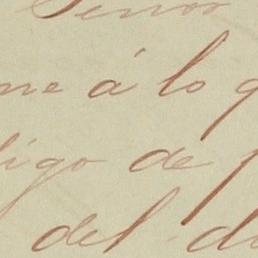 Señor
me á lo q
digo de p
del di